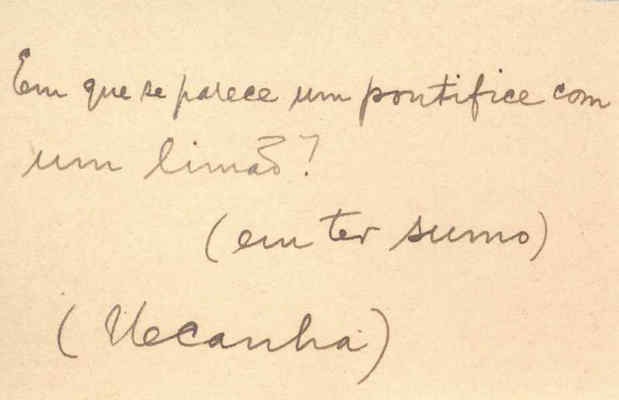 Em que se parece um pontifice com
um limão?
(em ter sumo)
(Ucanha)